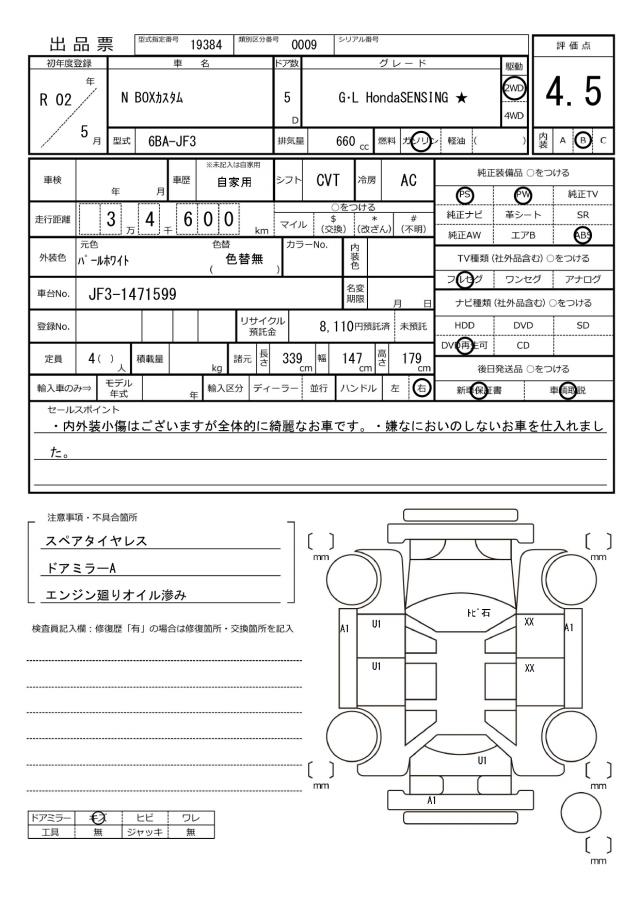 出品票 型式指定番号 19384 類別区分番号 0009 シリアル番号
評価点
4.5
内装 A B C
初年度登録 車名 ドア数 グレード 駆動
R 02 年 5 月
N BOXカスタム 5 D G・L HondaSENSING ★ 2WD 4WD
型式 6BA-JF3 排気量 660 cc 燃料 ガソリン 軽油 ( )
車検 年 月 車歴 ※未記入は自家用 自家用 シフト CVT 冷房 AC
走行距離 3 万 4 千 6 0 0 km ○をつける
マイル $ (交換) * (改ざん) # (不明)
外装色 元色 パールホワイト 色替 ( 色替無 ) カラーNo. 内装色
車台No. JF3-1471599 名変期限 月 日
登録No. リサイクル預託金 8,110円預託済 未預託
定員 4( ) 人 積載量 kg 諸元 長さ 339 cm 幅 147 cm 高さ 179 cm
輸入車のみ⇒ モデル年式 年 輸入区分 ディーラー 並行 ハンドル 左 右
純正装備品 ○をつける
PS PW 純正TV
純正ナビ 革シート SR
純正AW エアB ABS
TV種類(社外品含む) ○をつける
フルセグ ワンセグ アナログ
ナビ種類(社外品含む) ○をつける
HDD DVD SD
DVD再生可 CD
後日発送品 ○をつける
新車保証書 車輌取説
セールスポイント
・内外装小傷はございますが全体的に綺麗なお車です。・嫌なにおいのしないお車を仕入れまし
た。
注意事項・不具合箇所
スペアタイヤレス
ドアミラーA
エンジン廻りオイル滲み
検査員記入欄：修復歴「有」の場合は修復箇所・交換箇所を記入
ドアミラー キズ ヒビ ワレ
工具 無 ジャッキ 無
[ ] mm
[ ] mm
トビ石
A1 U1 XX A1
U1 XX
U1
[ ] mm
[ ] mm
A1
[ ] mm